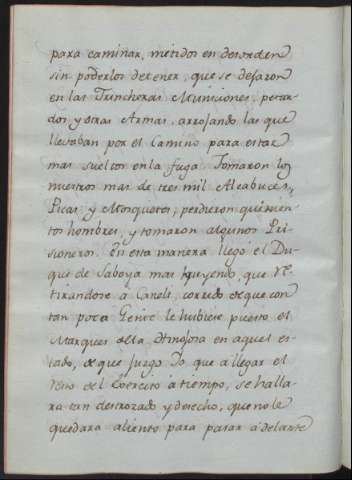 para caminar, metidos en desorden
sin poderlos detener, que se dejaron
en las Trincheras Municiones, petar-
dos y otras Armas, arrojando las que
llevaban por el Camino para estar
mas sueltos en la fuga. Tomaron los
nuestros mas de tres mil Alcabuces,
Picas y Mosquetes, perdieron quinien-
tos hombres, y tomaron algunos Pri-
sioneros. En esta manera llegó el Du-
que de Saboya mas huyendo, que re-
tirandose á Caneli, corrido de que con
tan poca Gente le hubiese puesto el
Marques de la Hinojosa en aquel es-
tado, de que juzgo Yo que a llegar el
resto del Exercito á tiempo, se halla-
ra tan destrozado y deshecho, que no le
quedara aliento para pasar adelante